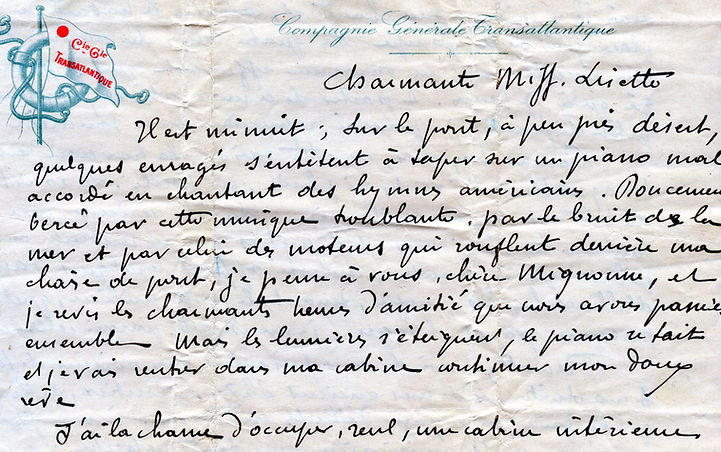 Cie Gle
TRANSATLANTIQUE
Compagnie Générale Transatlantique
Charmante Miss. Lisette
Il est minuit ; sur le pont, à peu près désert,
quelques enragés s'entêtent à taper sur un piano mal
accordé en chantant des hymnes américains. Doucement
bercé par cette musique troublante. par le bruit de la
mer et par celui des moteurs qui ronflent derrière ma
chaise de pont, je pense à vous, chère Mignonne, et
je revis les charmants heures d'amitié que nous avons passées
ensemble mais les lumières s'éteignent, le piano se tait
et je vais rentrer dans ma cabine continuer mon doux
rêve
J'ai la chance d'occuper, seul, une cabine intérieure